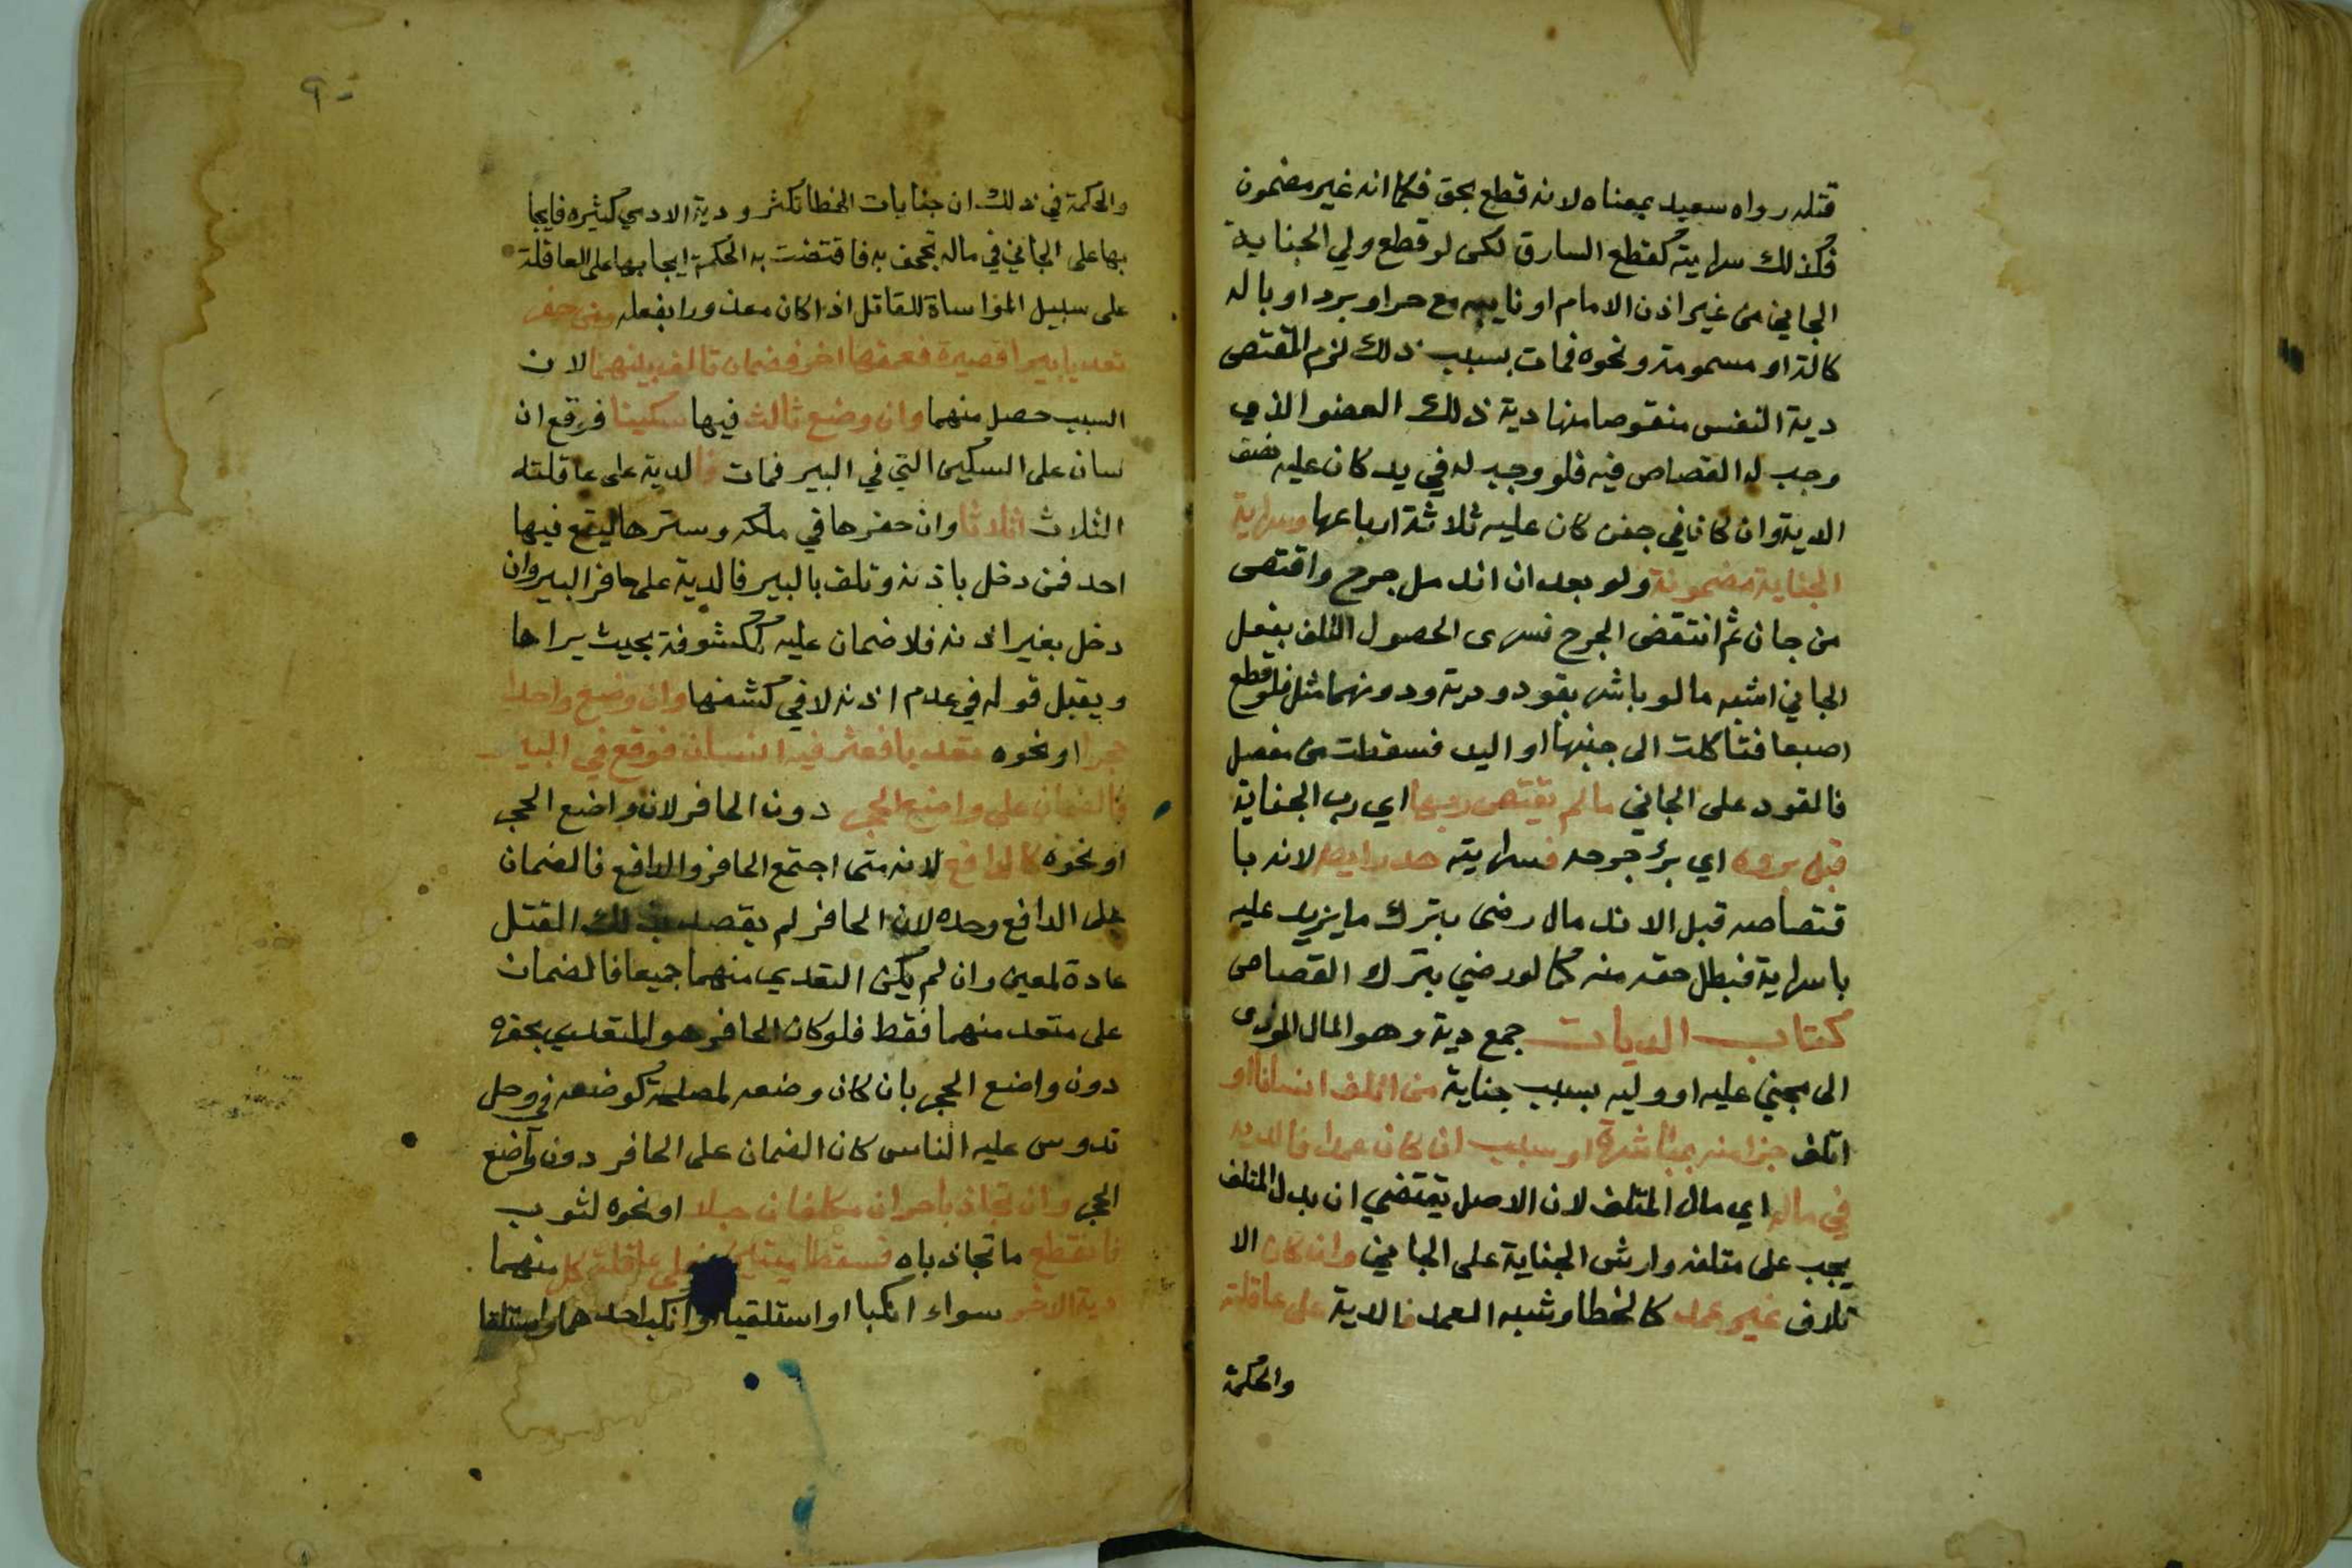 قتله رواه سعيد بمعناه لانه قطع بحق فكما انه غير مضمون
فكذلك سرايته كقطع السارق لكن لو قطع ولي الجناية
الجاني من غير اذن الامام او نايبه مع حر او برد او بالة
كالة او مسمومة ونحوه فمات بسبب ذلك لزم المقتص
دية النفس منقوصا منها دية ذلك العضو الذي
وجب له القصاص فيه فلو وجب له في يد كان عليه نصف
الدية وان كان في جفن كان عليه ثلاثة ارباعها وسراية
الجناية مضمونة ولو بعد ان اندمل جرح واقتص
من جان ثم انتقض الجرح فسرى الحصول التلف بفعل
الجاني اشبه ما لو باشره بقود ودية ودونهما مثل فلو قطع
اصبعا فتاكلت الى جنبها او اليد فسقطت من مفصل
فالقود على الجاني مالم يقتص ربها اي رب الجناية
قبل بروه اي برؤ جرحه فسرايته هدر ايضا لانه با
قتصاصه قبل الاندمال رضى بترك ما يزيد عليه
باسراية فبطل حقه منه كما لو رضي بترك القصاص
كتاب الديات جمع دية وهو المال المودى
الى مجني عليه او وليه بسبب جناية من اتلف انسانا او
اتلف جزا منه بمباشرة او سبب ان كان عمدا فالدية
في ماله اي مال المتلف لان الاصل يقتضي ان بدل المتلف
يجب على متلفه وارش الجناية على الجاني وان كان الا
تلاف غير عمد كالخطا وشبه العمد فالدية على عاقلته
والحكمة
٩٠
والحكمة في ذلك ان جنايات الخطا تكثر ودية الادمي كثيره فايجا
بها على الجاني في ماله تجحف به فاقتضت به الحكمة ايجابها على العاقلة
على سبيل المواساة للقاتل اذا كان معذورا بفعله ومن حفر
تعديا بيرا قصيرة فعمقها اخر فضمان تالف بينهما لان
السبب حصل منهما وان وضع ثالث فيها سكينا فوقع ان
سان على السكين التي في البير فمات فالدية على عاقلته
الثلاث اثلاثا وان حفرها في ملكه وسترها ليقع فيها
احد فمن دخل باذنه وتلف بالبير فالدية على حافر البير وان
دخل بغير اذنه فلا ضمان عليه كمكشوفة بحيث يراها
ويقبل قوله في عدم اذنه لا في كشفها وان وضع واحدا
حجرا او نحوه تعديا فعثر فيه انسان فوقع في البير
فالضمان على واضع الحجر دون الحافر لان واضع الحجر
او نحوه كالدافع لانه متى اجتمع الحافر والدافع فالضمان
على الدافع وحده لان الحافر لم يقصد بذلك القتل
عادة لمعين وان لم يكن التعدي منهما جميعا فالضمان
على متعد منهما فقط فلو كان الحافر هو المتعدي بحفره
دون واضع الحجر بان كان وضعه لمصلحة كوضعه في وحل
تدوس عليه الناس كان الضمان على الحافر دون واضع
الحجر وان تجاذبا حران مكلفان حبلا او نحوه لثوب
فانقطع ما تجاذباه فسقطا ميتين فعلى عاقلة كل منهما
دية الاخر سواء انكبا او استلقيا او انكب احدهما واستلقا